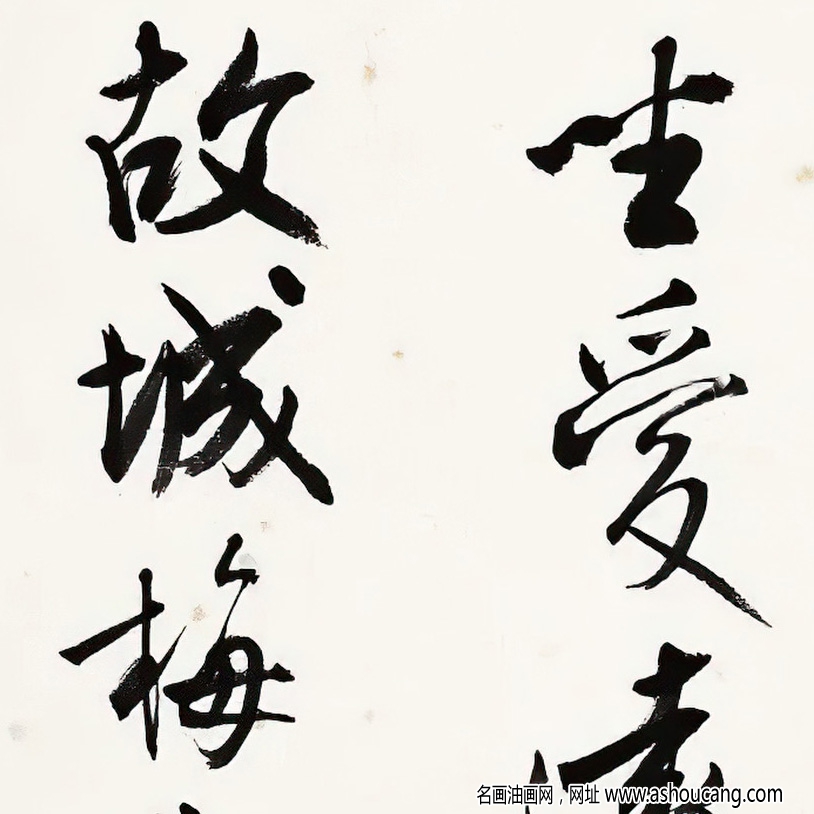 坐爱
故城梅
名画油画网，网址 www.ashoucang.com